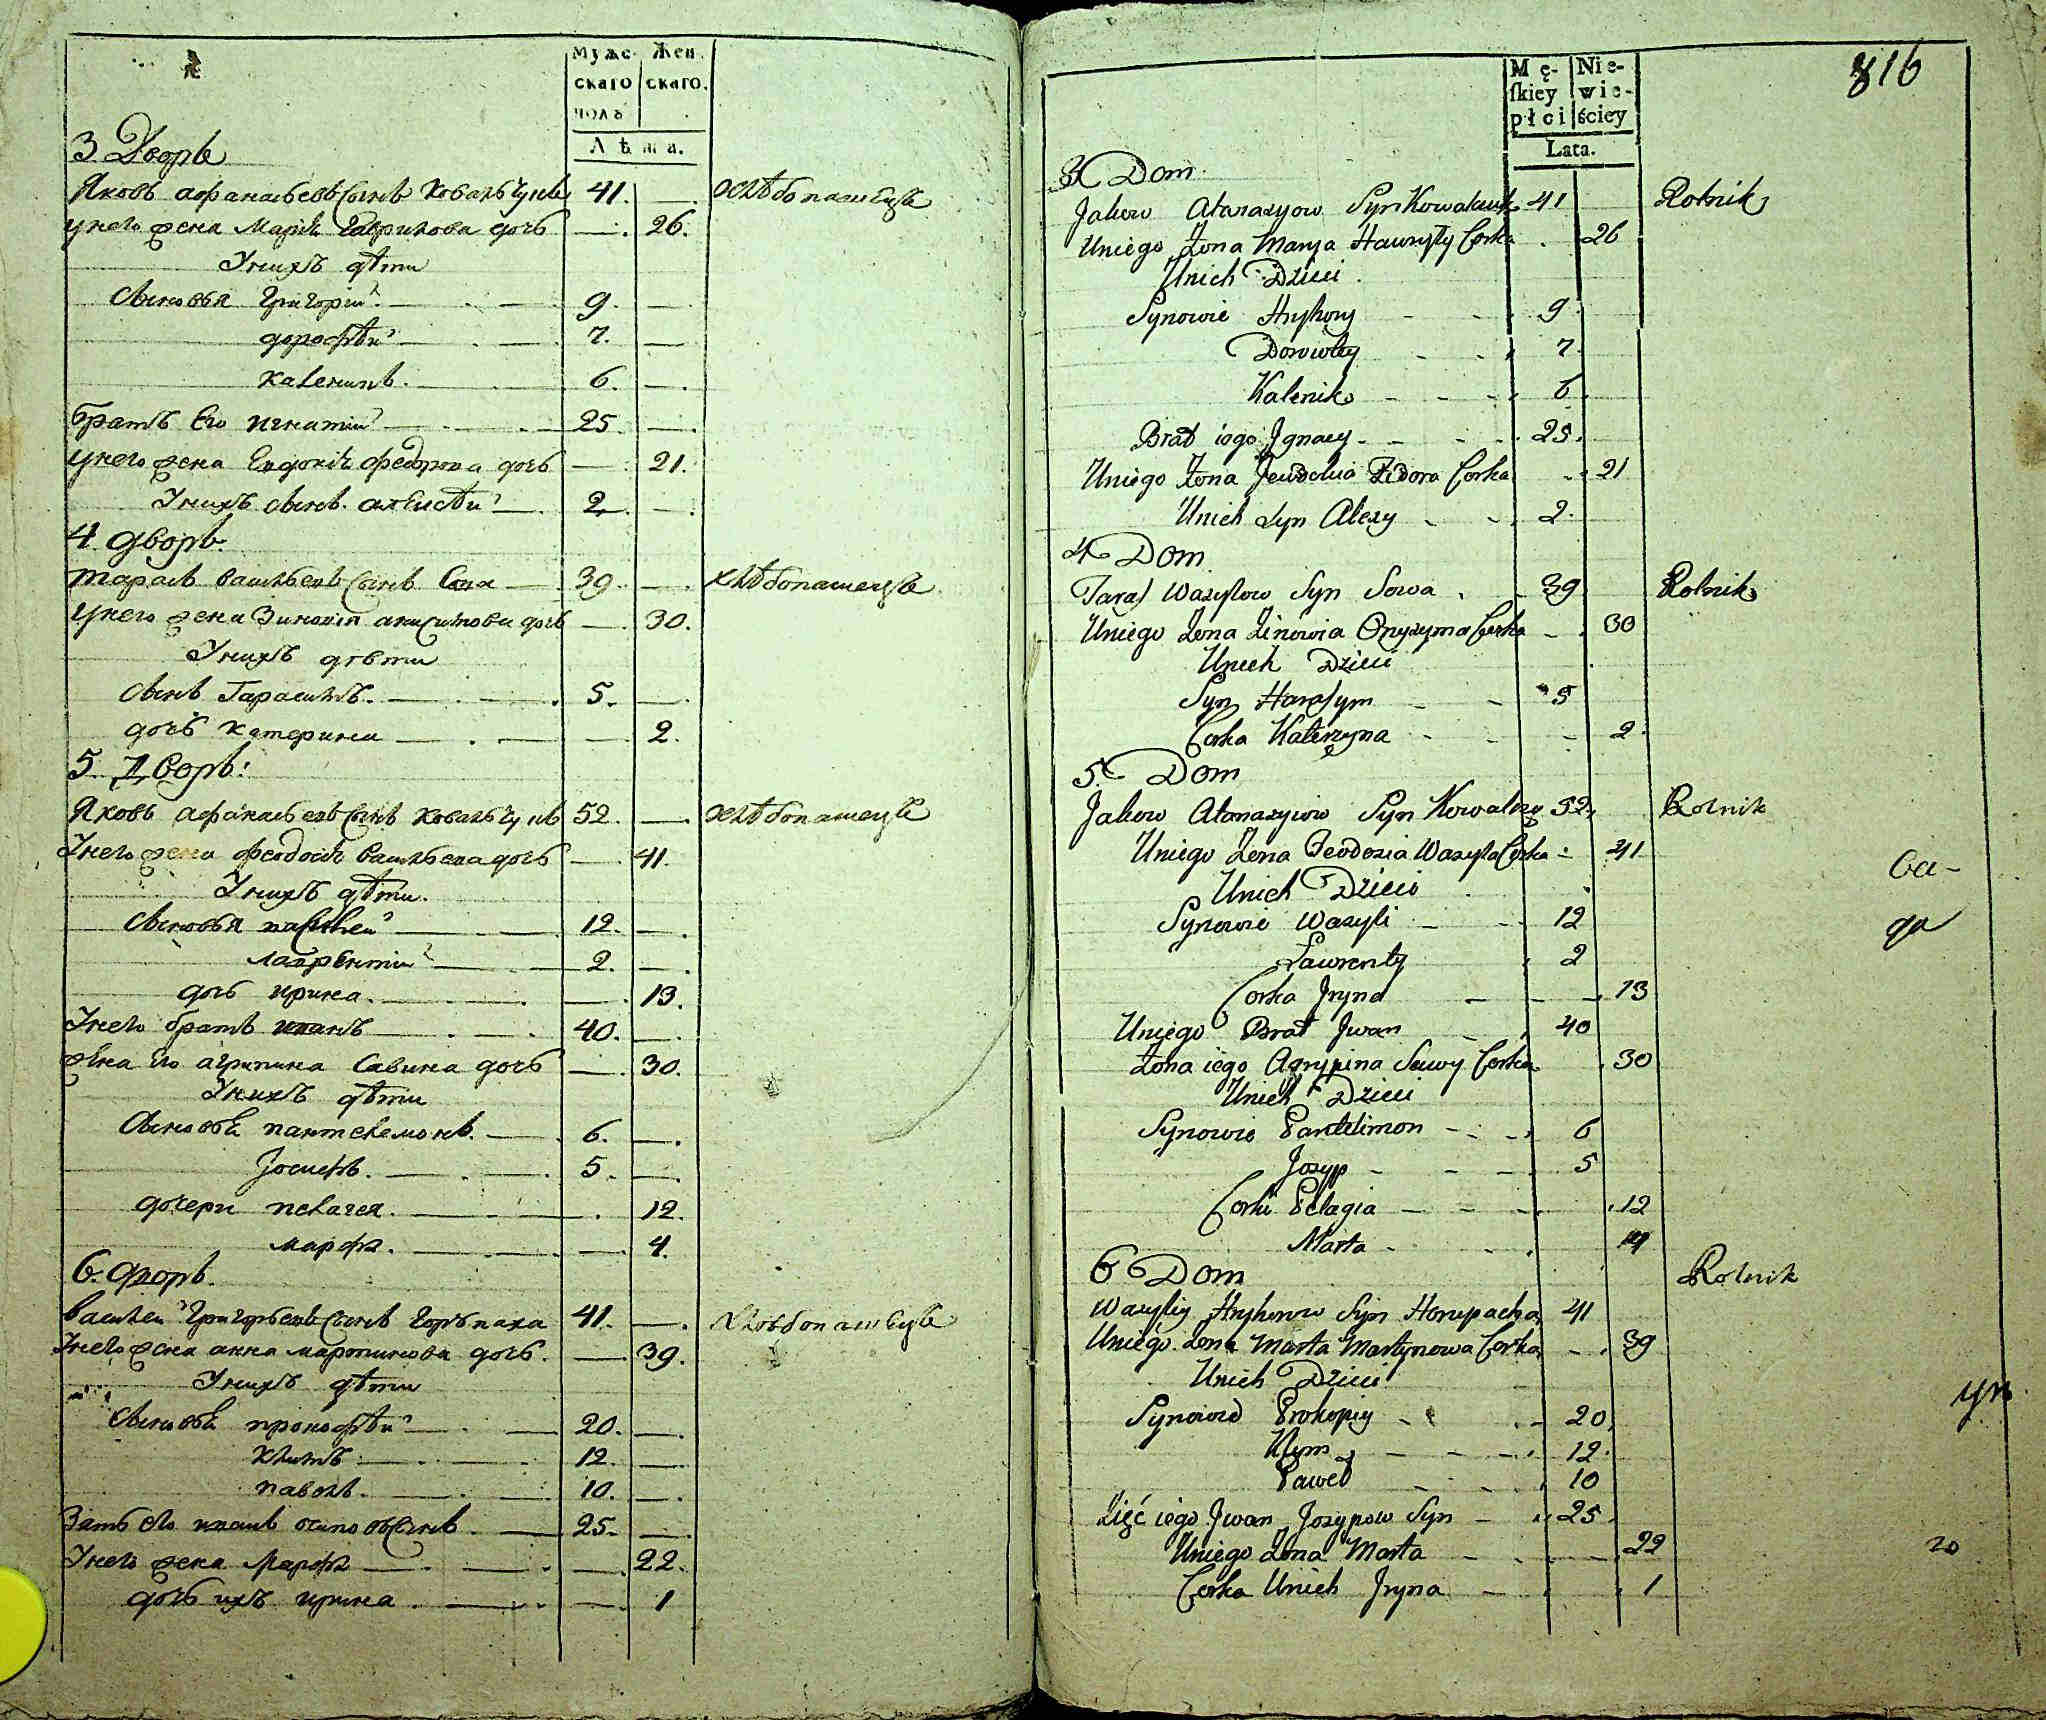 Мужс- Жен-
скаго скаго.
полъ
Лѣта.
3 Дворъ
Яковъ афанасьевъ сынъ Ковальчукъ 41. — хлѣбопашецъ
унего жена Марія Гаврилова дочь — 26.
Унихъ дѣти
Сыновья Григорий 9. —
дорофѣй 7. —
каленикъ. 6. —
братъ Его игнатий 25. —
унего жена Евдокія федорова дочь — 21.
Унихъ сынъ алексѣй 2. —
4. дворъ.
тарасъ васильевъ сынъ Сова 39. — хлѣбопашецъ
унего жена Зиновія анисимова дочь — 30.
Унихъ дѣти
сынъ Гарасимъ. 5. —
дочь катерина — 2.
5. Дворъ:
Яковъ афанасьевъ сынъ ковальчукъ 52. — хлѣбопашецъ
Унего жена феодосія васильева дочь — 41.
Унихъ дѣти.
Сыновья василей 12. —
лаврентий 2. —
дочь ирина. — 13.
Унего братъ иванъ 40. —
жена Его агрипина Савина дочь — 30.
Унихъ дѣти
Сыновья пантелемонъ. 6. —
Іосифъ. 5. —
дочери пелагея. — 12.
марфа. — 4.
6. дворъ.
василей Григорьевъ сынъ 41. — хлѣбопашецъ
Унего жена анна мартинова дочь. — 39.
Унихъ дѣти
Сыновья прокофѣй 20. —
климъ 12. —
павелъ. 10. —
Зять его иванъ осиповъ сынъ. 25. —
Унего жена Марфа — 22.
дочь ихъ ирина. — 1
816
Mę- Nie-
skiey wie-
płci ściey
Lata.
3 Dom.
Jakow Atanazyow Syn Kowalczuk 41 Rolnik
Uniego Żona Marya Hawryły Corka 26
Unich Dzieci
Synowie Hryhory 9
Dorowtey 7
Kalenik 6
Brat iego Jgnacy 25.
Uniego Żona Jewdokia Fedora Corka 21
Unich Syn Alexy 2.
4 Dom
Taras Wasylow Syn Sowa 39 Rolnik
Uniego Zona Zinowia Onyzyma Corka 30
Unich Dzieci
Syn Harasym 5
Corka Katerzyna 2
5. Dom
Jakow Atanazyiow Syn 52 Rolnik
Uniego Zona Teodozia Wasyla Corka 41
Unich Dzieci
Synowie Wasyli 12
Lawrenty 2
Corka Jryna 13
Uniego Brat Jwan 40
Żona iego Agrypina Sawy Corka 30
Unich Dzieci
Synowie Pantelimon 6
Jozyp 5
Corki Pelagia 12
Marta 4
6 Dom Rolnik
Wasyliy Hryhorow Syn 41
Uniego Zona Marta Martynowa Corka 39
Unich Dzieci
Synowie Prokopiy 20
Klym 12.
Paweł 10
Zięć iego Jwan Jozypow Syn 25
Uniego Zona Marta 22
Corka Unich Jryna 1
са-
да
ун
го